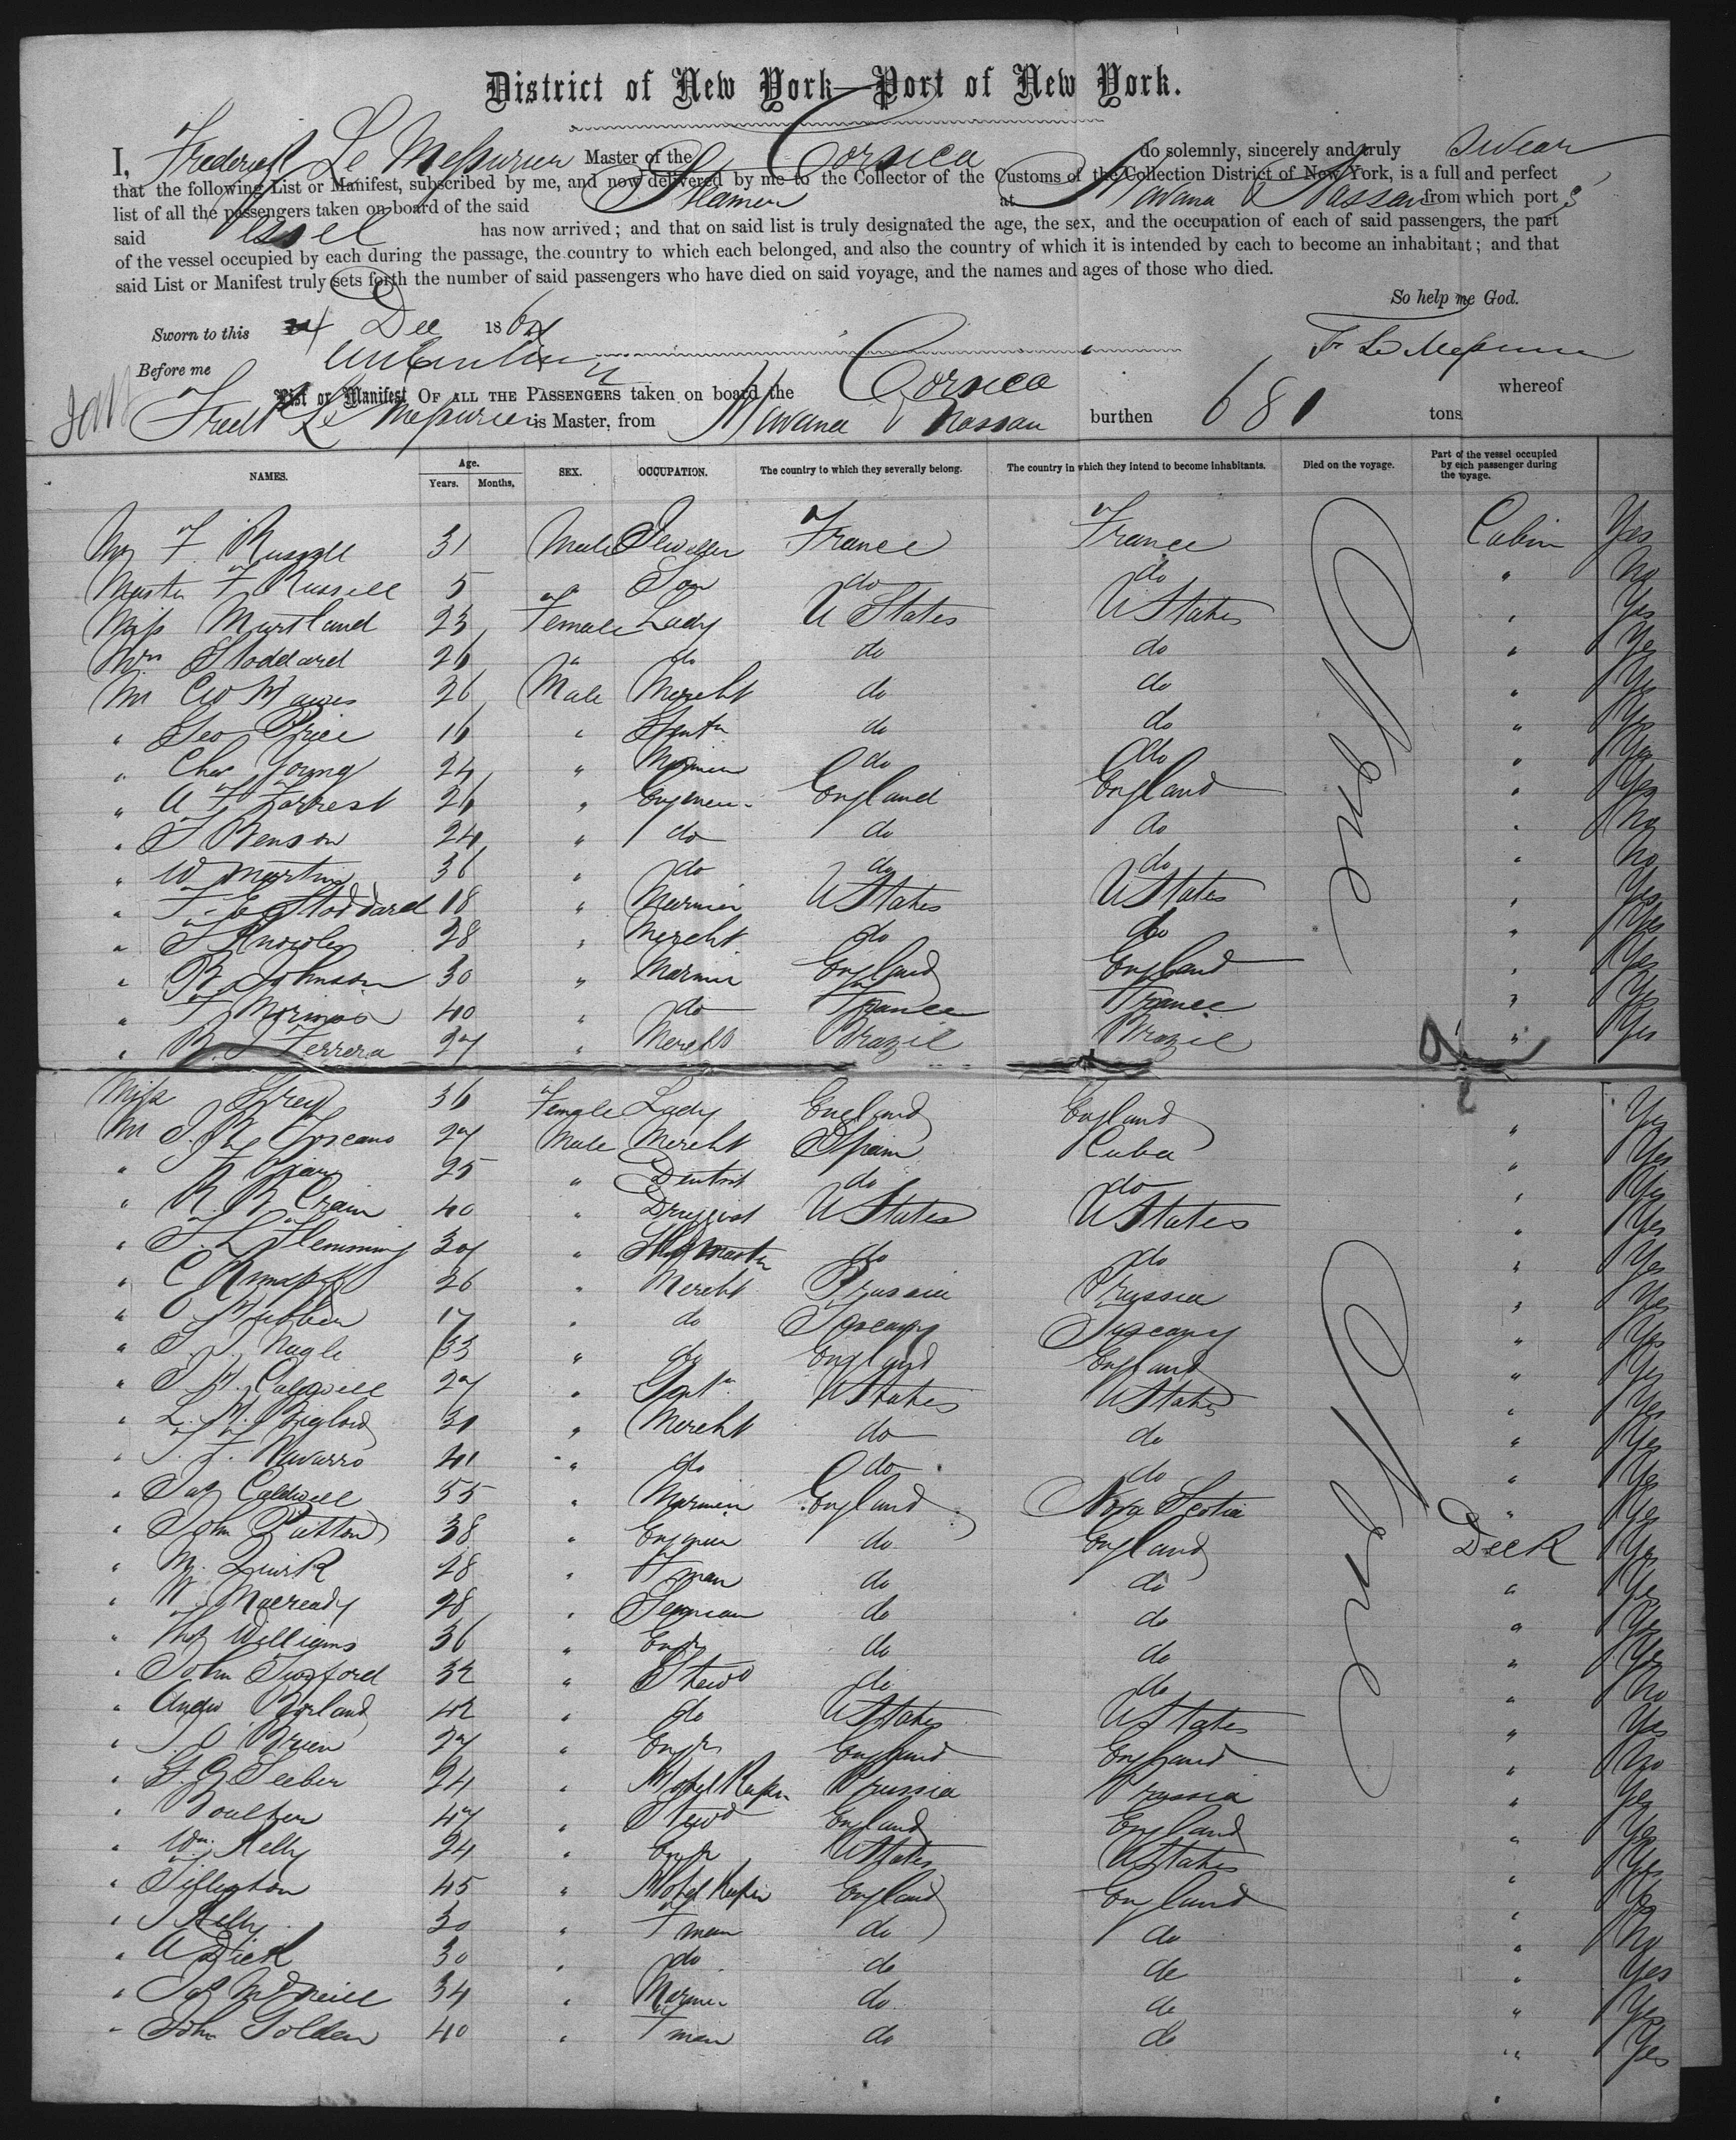 District of New York—Port of New York.
I, Frederick Le Messurier Master of the Corsica do solemnly, sincerely and truly Swear
that the following List or Manifest, subscribed by me, and now delivered by me to the Collector of the Customs of the Collection District of New York, is a full and perfect
list of all the passengers taken on board of the said Steamer at Havana & Nassau from which port s
said Vessel has now arrived; and that on said list is truly designated the age, the sex, and the occupation of each of said passengers, the part
of the vessel occupied by each during the passage, the country to which each belonged, and also the country of which it is intended by each to become an inhabitant; and that
said List or Manifest truly sets forth the number of said passengers who have died on said voyage, and the names and ages of those who died.
So help me God.
Sworn to this Dec 186
F Le Messurier
Before me
List or Manifest OF ALL THE PASSENGERS taken on board the Corsica whereof
Fredk Le Messurier is Master, from Havana & Nassau burthen 681 tons
NAMES. Age. Years. Months. SEX. OCCUPATION. The country to which they severally belong. The country in which they intend to become inhabitants. Died on the voyage. Part of the vessel occupied by each passenger during the voyage.
Mr F. Russell 31 Male Jeweller France France Cabin Yes
Master F. Russell 5 " Son do do " No
Miss Martland 23 Female Lady U States U States " Yes
Mrs Stoddard 26 " do do do " Yes
Mr C W Hawes 26 Male Mercht do do " Yes
" Geo Price 16 " Gentn do do " Yes
" Chas Young 24 " Mariner do do " Yes
" A F Forrest 26 " Engineer England England " Yes
" J Benson 24 " do do do " No
" W Martin 36 " do do do " No
" F. E. Stoddard 18 " Mariner U States U States " Yes
" J Knowles 28 " Mercht do do " Yes
" R Johnson 30 " Mariner England England " Yes
" F 40 " do France France " Yes
" R. J Ferrera 27 " Mercht Brazil Brazil " Yes
Miss Grey 36 Female Lady England England " Yes
Mr J. Toscano 27 Male Mercht Spain Cuba " Yes
" 25 " Dentist do do " Yes
" R. R. Crain 40 " Druggist U States U States " Yes
" J. L. Flemming 34 " Ship Master do do " Yes
" C Knapp 26 " Mercht Prussia Prussia " Yes
" C 17 " do Tuscany Tuscany " Yes
" J. J. Nagle 33 " do England England " Yes
" J. H. Caldwell 27 " Gentn U States U States " Yes
" L. M. 30 " Mercht do do " Yes
" J. F. Navarro 41 " do do do " Yes
" Jas Caldwell 55 " Mariner England Nova Scotia " Yes
" John Patton 38 " Engineer do England Deck Yes
" M. Quirk 28 " F man do do " Yes
" W. Macready 28 " Seaman do do " Yes
" Thos Williams 36 " Engr do do " Yes
" John Twyford 32 " Stewd do do " No
" Angus Borland 42 " do U States U States " Yes
" J O Brien 27 " Engr England England " No
" G. G Seeber 24 " Hotel Keeper Prussia Prussia " Yes
" Boulten 47 " Stewd England England " Yes
" Wm. Kelly 24 " Engr U States U States " Yes
" Tiffington 45 " Hotel Keeper England England " Yes
" J Kelly 30 " F man do do " No
" A Dick 30 " do do do " Yes
" Jas McNeill 34 " Mariner do do " Yes
" John Golden 40 " F man do do " Yes
None
None